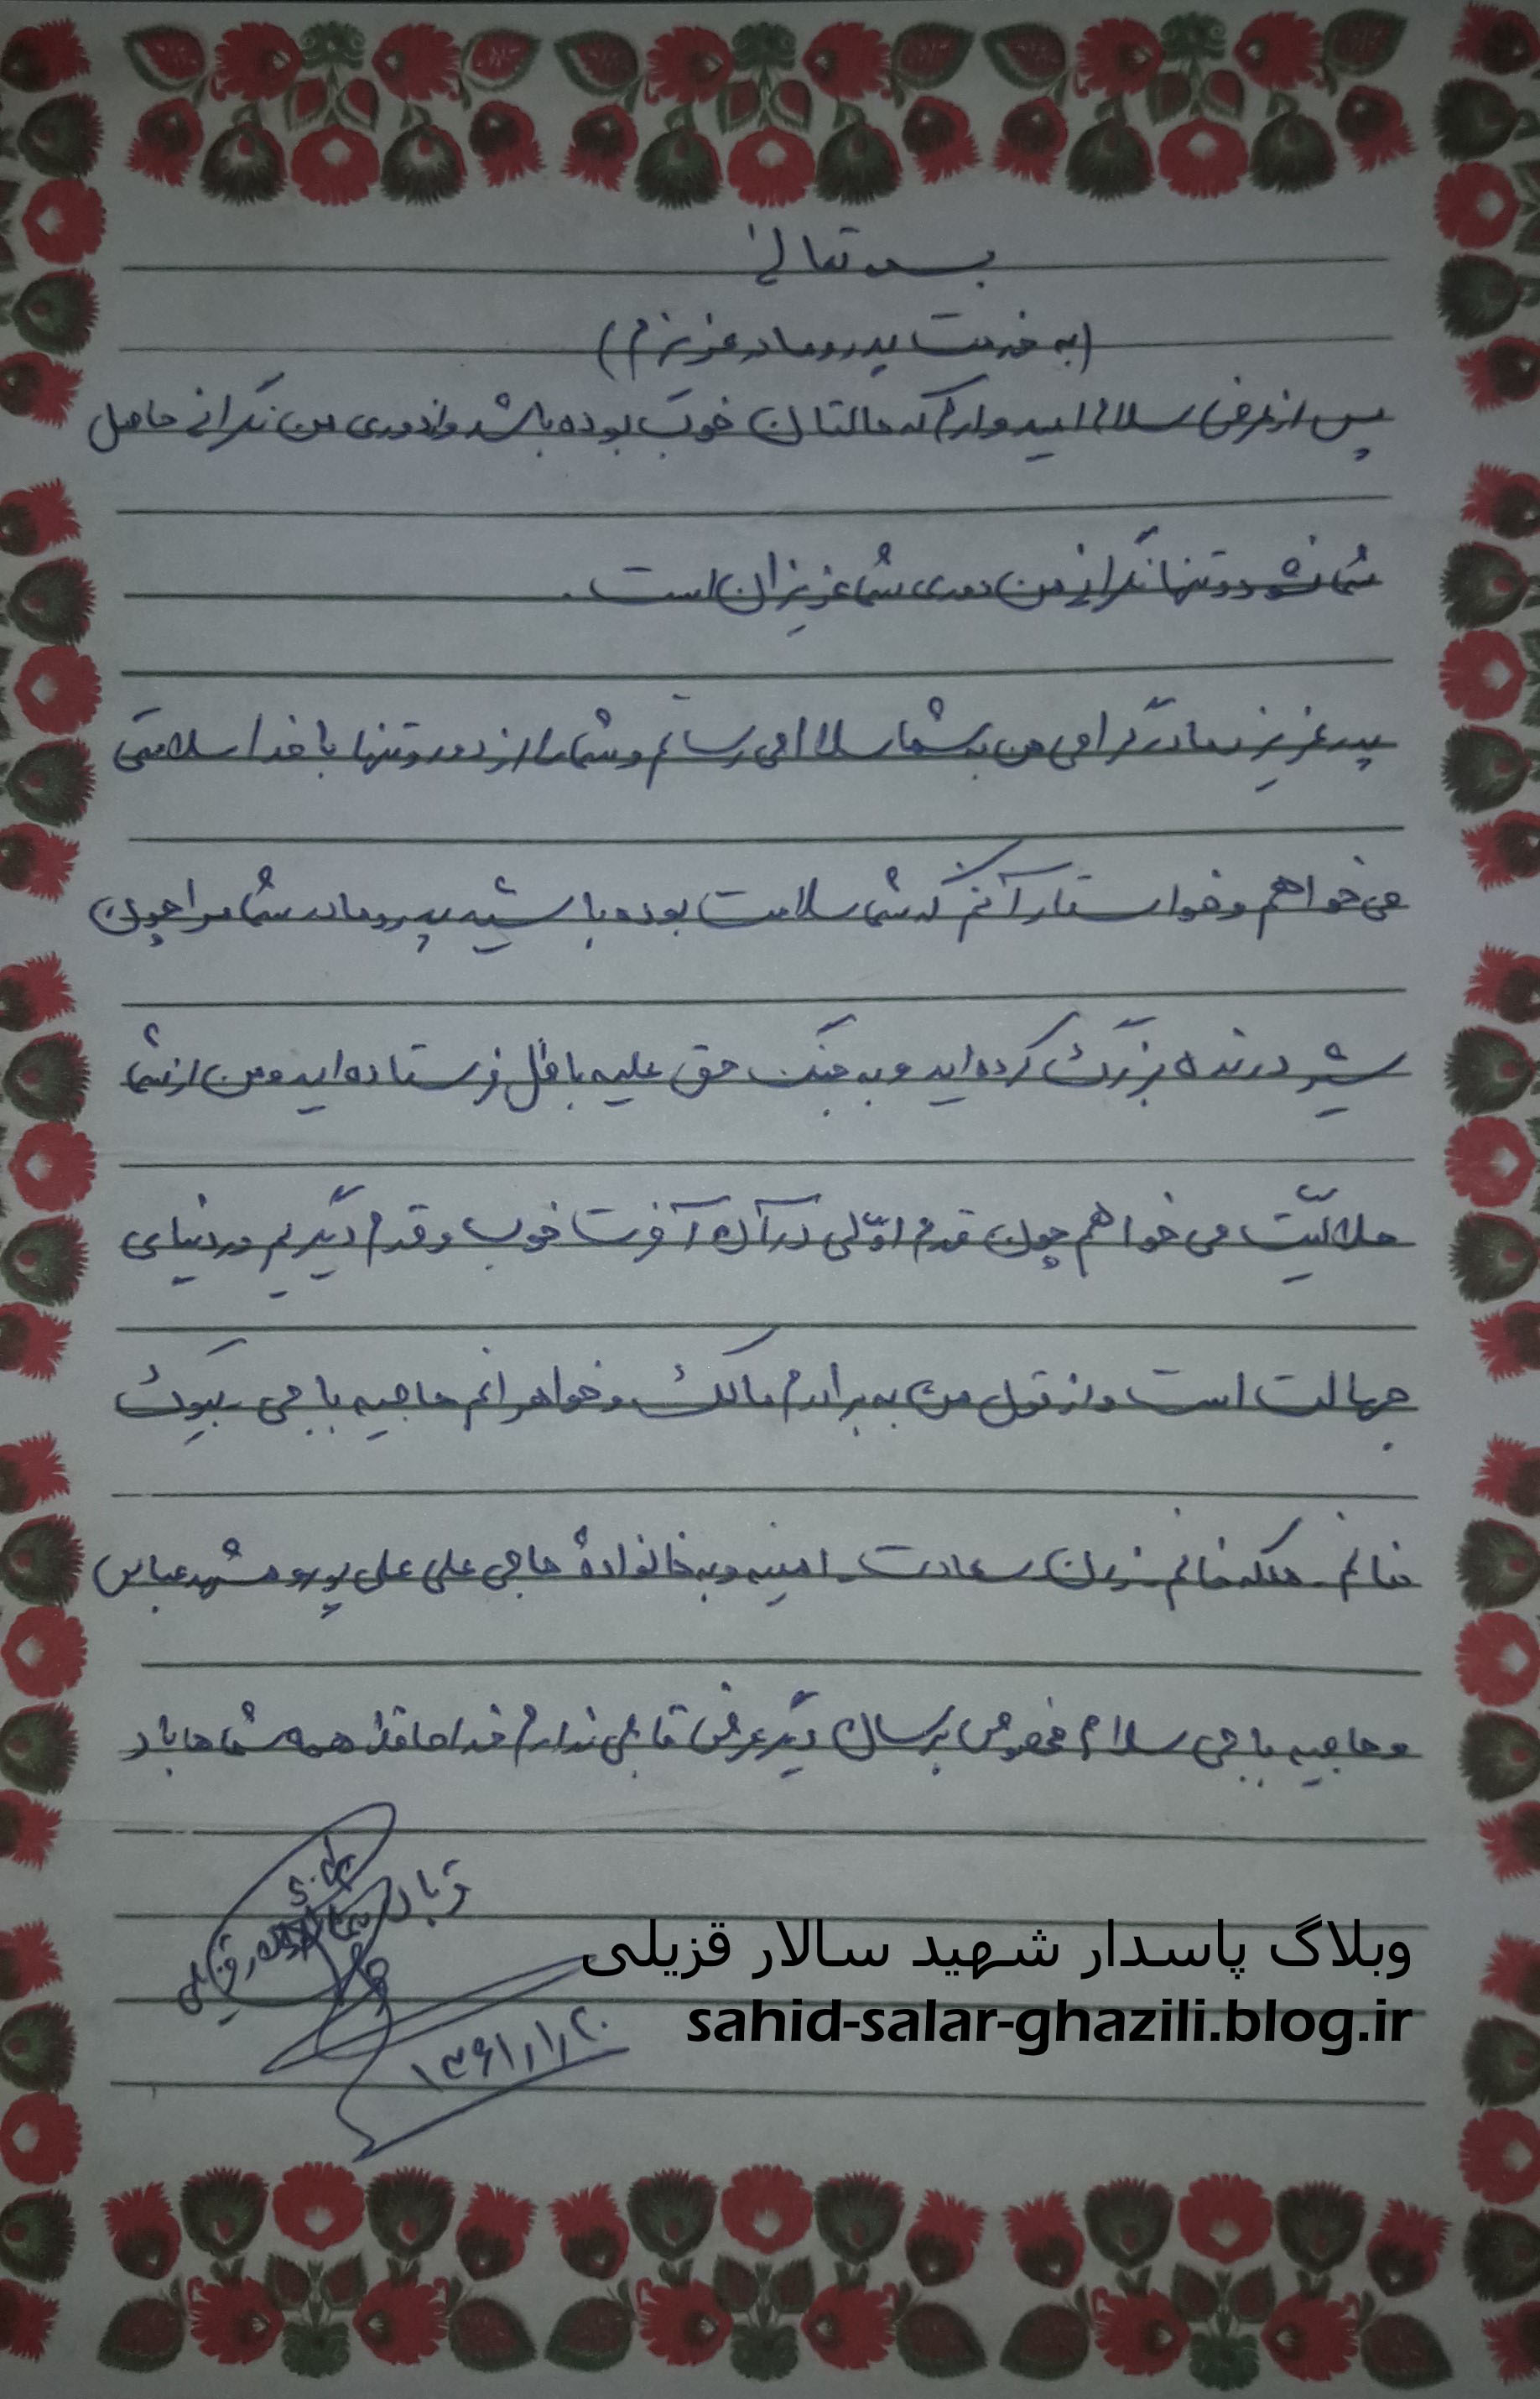 بسمه تعالی
(به خدمت پدر و مادر عزیزم)
پس از عرض سلام امیدوارم که حالتان خوب بوده باشد و از دوری من نگرانی حاصل
شما نشود و تنها نگرانی من دوری شما عزیزان است.
پدر عزیز و مادر گرامی من به شما سلام می رسانم و شما را از دور و تنها با خدا سلامتی
می خواهم و خواستار آنم که شما سلامت بوده باشید پدر و مادر شما مرا چون
شیر درنده بزرگ کرده اید و به جنگ حق علیه باطل فرستاده اید و من از شما
حلالیّت می خواهم چون قدم اوّلی در آن آخرت خوب و قدم دیگریم در دنیای
جهالت است و از قول من به برادرم مالک و خواهرانم حاجیه باجی بیوک
خانم. ملکه خانم. سعادت. امینه و به خانوادهٔ حاجی علی علی پور و مشهد عباس
و حاجیه باجی سلام مخصوص برسان دیگر عرض قابلی ندارم خداحافظ همه شماها باد
قربان
۱۳۶۱/۱/۲۰
وبلاگ پاسدار شهید سالار قزیلی
sahid-salar-ghazili.blog.ir